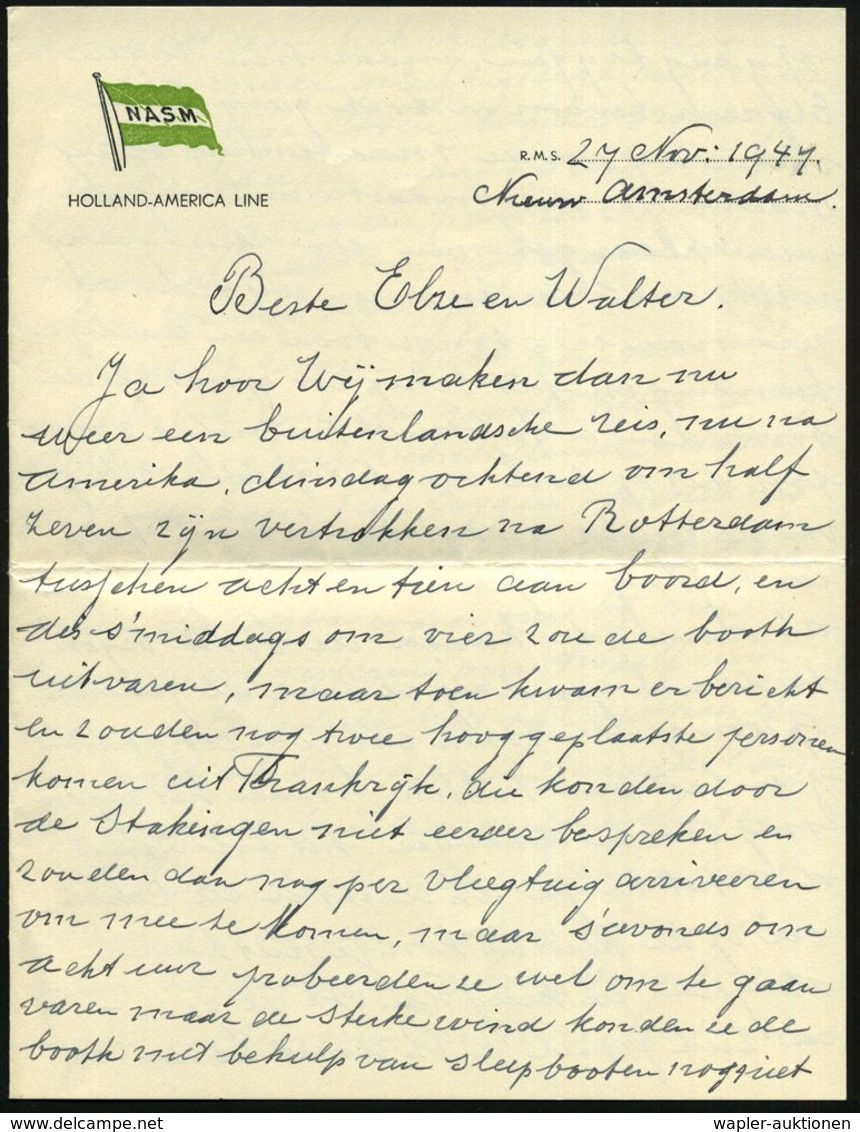 NASM
HOLLAND-AMERICA LINE
R.M.S. 27 Nov: 1947.
Nieuw Amsterdam.
Beste Else en Walter.
Ja hoor Wij maken dan nu
weer een buitenlandsche reis, nu na
Amerika, dinsdagochtend om half
zeven zijn vertrokken na Rotterdam
tusschen acht en tien aan boord, en
des s'middags om vier zou de booth
uitvaren, maar toen kwam er bericht
en zouden nog twee hooggeplaatste personen
komen uit Frankrijk, die konden door
de Stakingen niet eerder bespreken en
zouden dan nog per vliegtuig arriveeren
om mee te komen, maar s'avonds om
acht uur probeerden ze wel om te gaan
varen maar de sterke wind konden ze de
booth met behulp van sleepbooten nog niet
wapler-auktionen